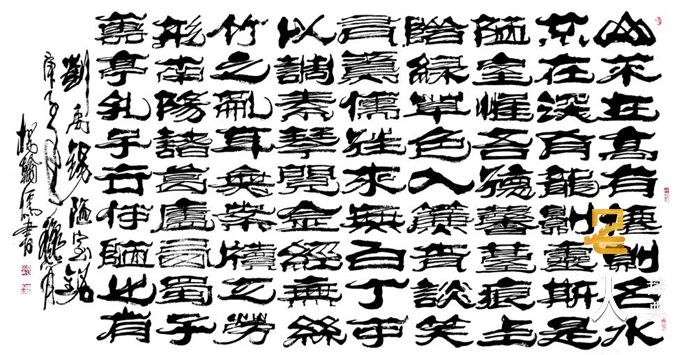 山不在高有僊則名水
不在深有龍則靈斯是
陋室惟吾德馨苔痕上
階綠草色入簾青談笑
有鴻儒往來無白丁可
以調素琴閱金經無絲
竹之亂耳無案牘之勞
形南陽諸葛廬西蜀子
雲亭孔子云何陋之有
劉禹錫陋室銘
庚子
楊翰
書
人